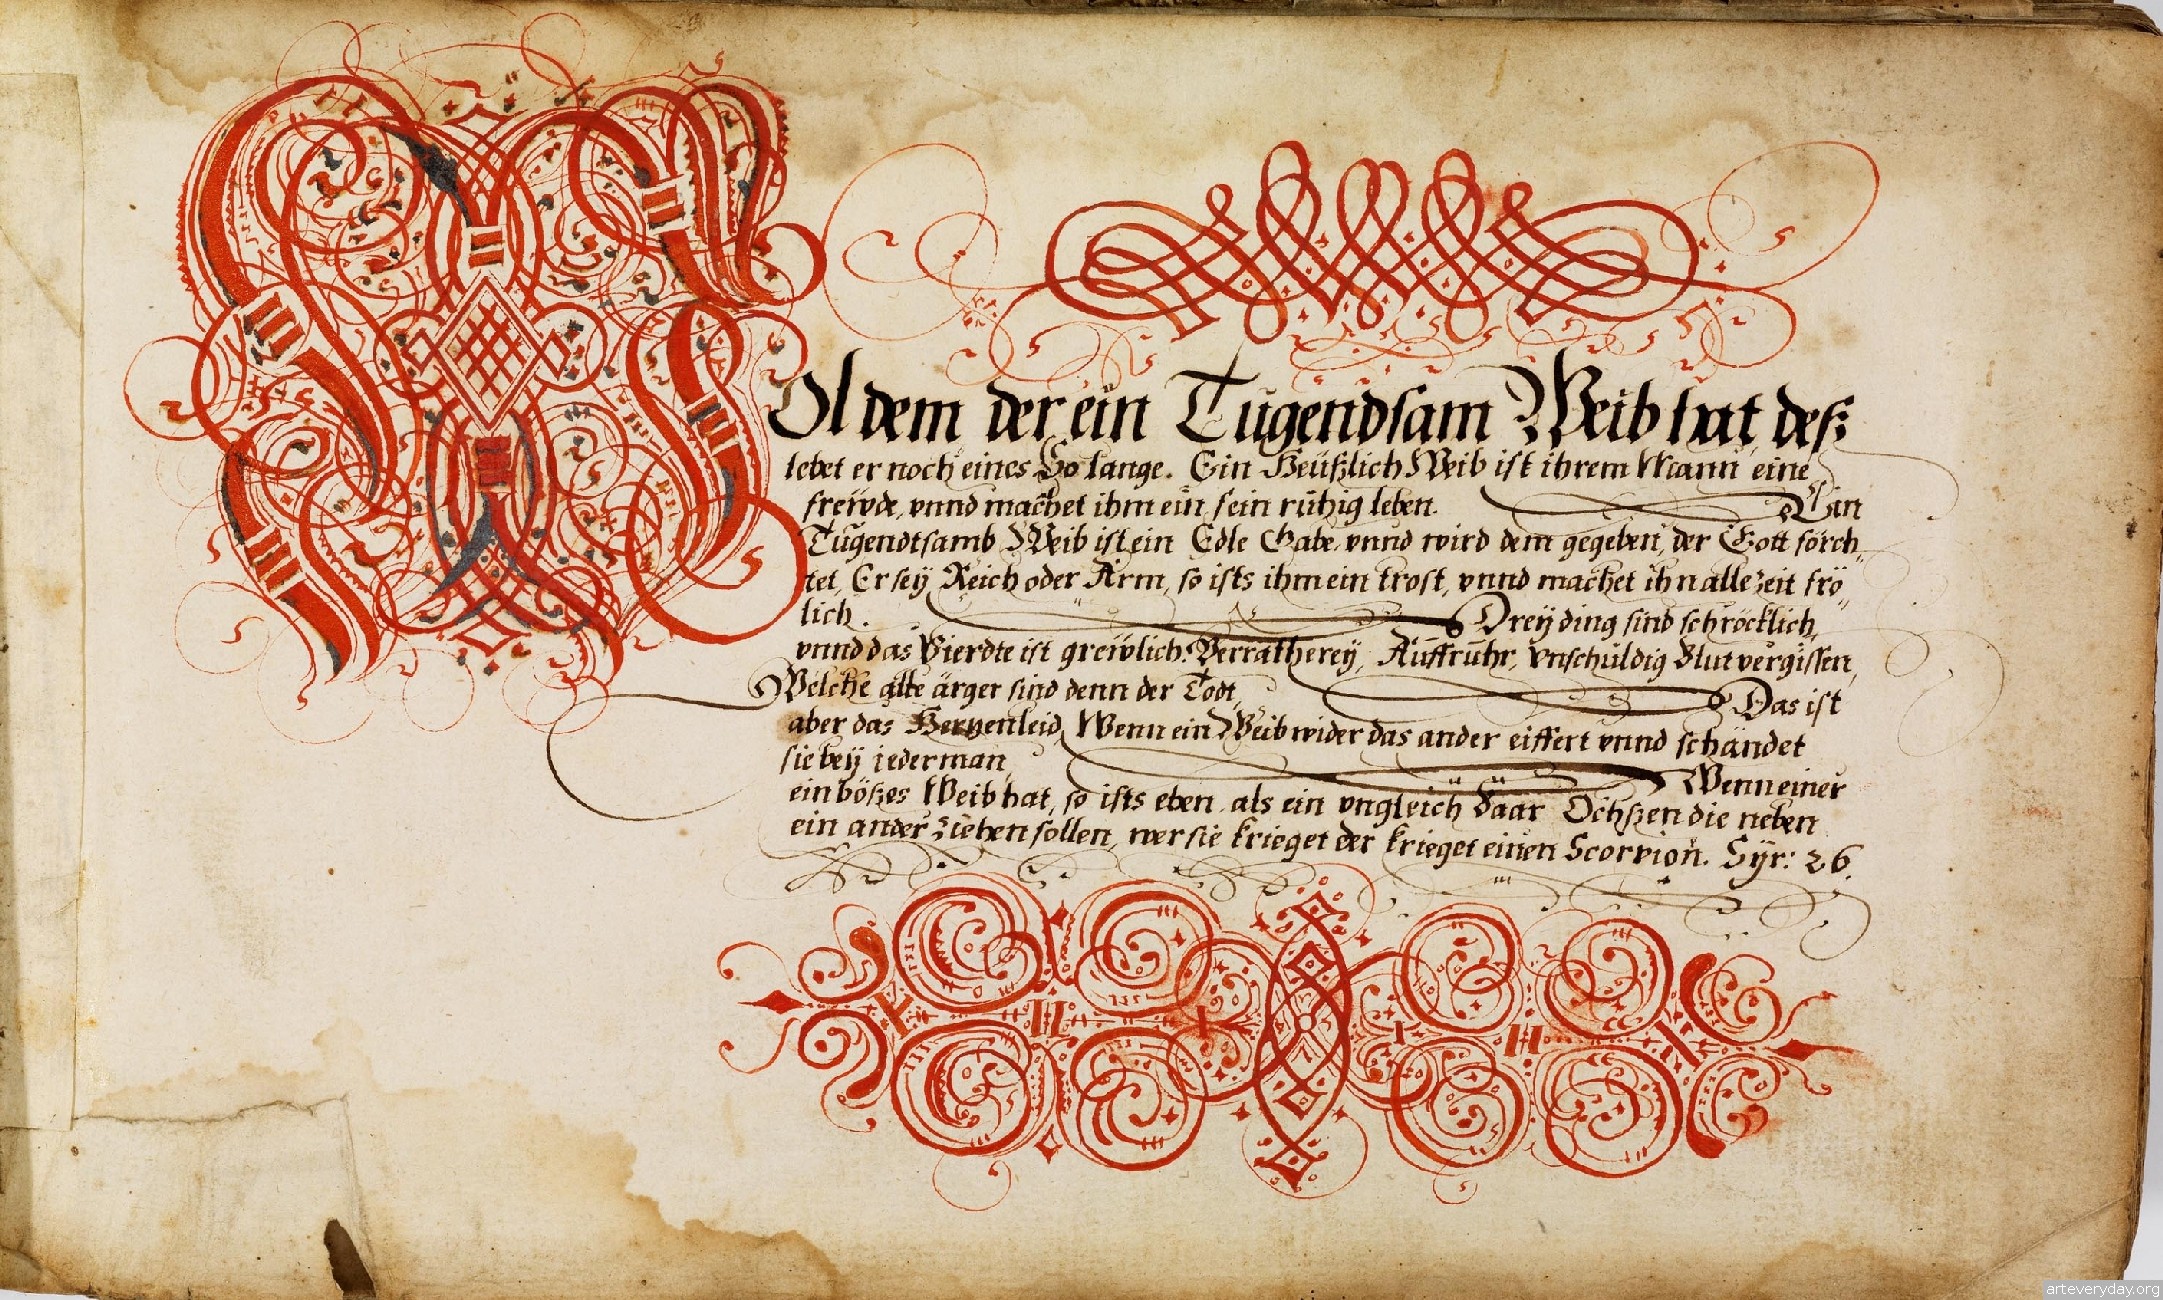 WOl dem der ein Tugendsam Weib hat, deß
lebet er noch eines So lange. Ein Heüßlich Weib ist ihrem Mann eine
freẅde, vnnd machet ihm ein fein rühig leben. Ein
Tugendtsamb Weib ist ein Edle Gabe, vnnd wird dem gegeben, der Gott förch„
tet, Er seÿ Reich oder Arm, so ists ihm ein trost, vnnd machet ihn alle zeit frö„
lich. Dreÿ ding sind schröcklich,
vnnd das Vierdte ist greẅlich. Verrätherey, Auffruhr, vnschuldig Blut vergissen,
Welche alle ärger sind denn der Todt, Das ist
aber das Hertzenleid, Wenn ein Weib wider das ander eiffert vnnd schändet
sie beÿ jederman, Wenn einer
ein bößes Weib hat, so ists eben als ein vngleich Paar Ochßen die neben
ein ander ziehen sollen, wer sie krieget der krieget einen Scorpion. Sÿr: 26.
arteveryday.org